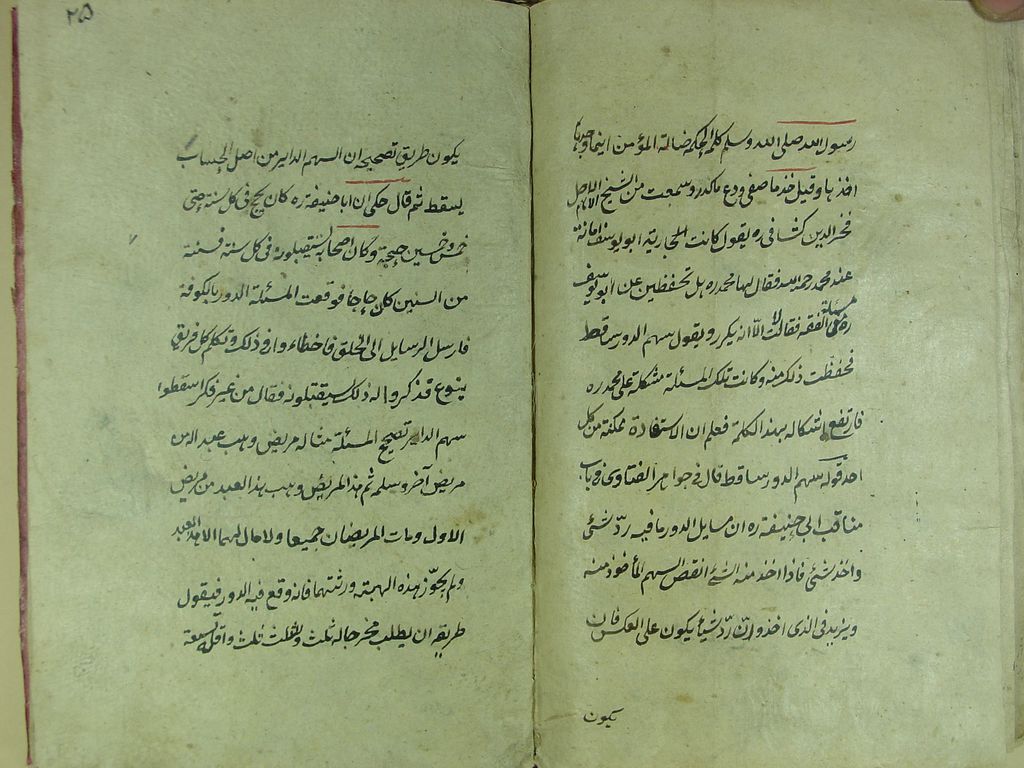 رسول الله صلى الله وسلم كلمة الحكمة ضالة المؤمن اينما وجدها
اخذها وقيل خذ ما صفى ودع ما كدر وسمعت من الشيخ الامام الاجل
فخر الدين كشافى ره يقول كانت الجارية ابو يوسف امانة
عند محمد رحمه الله فقال لها محمد ره هل تحفظين عن ابو يوسف
مسئلة
ره فى الفقه فقالت لا الا انه يكرر ويقول سهم الدور ساقط
فحفظت ذلك منه وكانت تلك المسئلة مشكلة على محمد ره
فارتفع اشكاله بهذه الكلمة فعلم ان الاستفادة ممكنة من كل
احد قوله سهم الدور ساقط قال فى جواهر الفتاوى فى باب
مناقب ابى حنيفة ره ان مسايل الدور ما فيه ردّ شئ
واخذ شئ فاذا اخذ منه الشئ انقص السهم المأخوذ منه
ويزيد فى الذى اخذ وان ردّ شيئا يكون على العكس فان
يكون
٢٥
يكون طريق تصحيحه ان السهم الداير من اصل الحساب
يسقط ثم قال حكى ان ابا حنيفة ره كان يحج فى كل سنة حتى
خمس وخمسين حجة وكان اصحابه يستقبلونه فى كل سنة فسنة
من السنين كان حاجا فوقعت المسئلة الدور بالكوفة
فارسل الرسايل الى الخلق فاخطاء وا فى ذلك وتكلم كل فريق
بنوع قد ذكروا له ذلك يستقبلونه فقال من غير فكر اسقطوا
سهم الداير تصحيح المسئلة مثاله مريض وهب عبدا من
مريض آخر وسلمه ثم هذا المريض وهب هذا العبد من مريض
الاول ومات المريضان جميعا ولا مال لهما الا هذا العبد
ولم يجوّز هذه الهبة ورثتهما فانه وقع فيه الدور فيقول
طريقه ان يطلب مخرجا له ثلث والثلث ثلث واقله تسعة